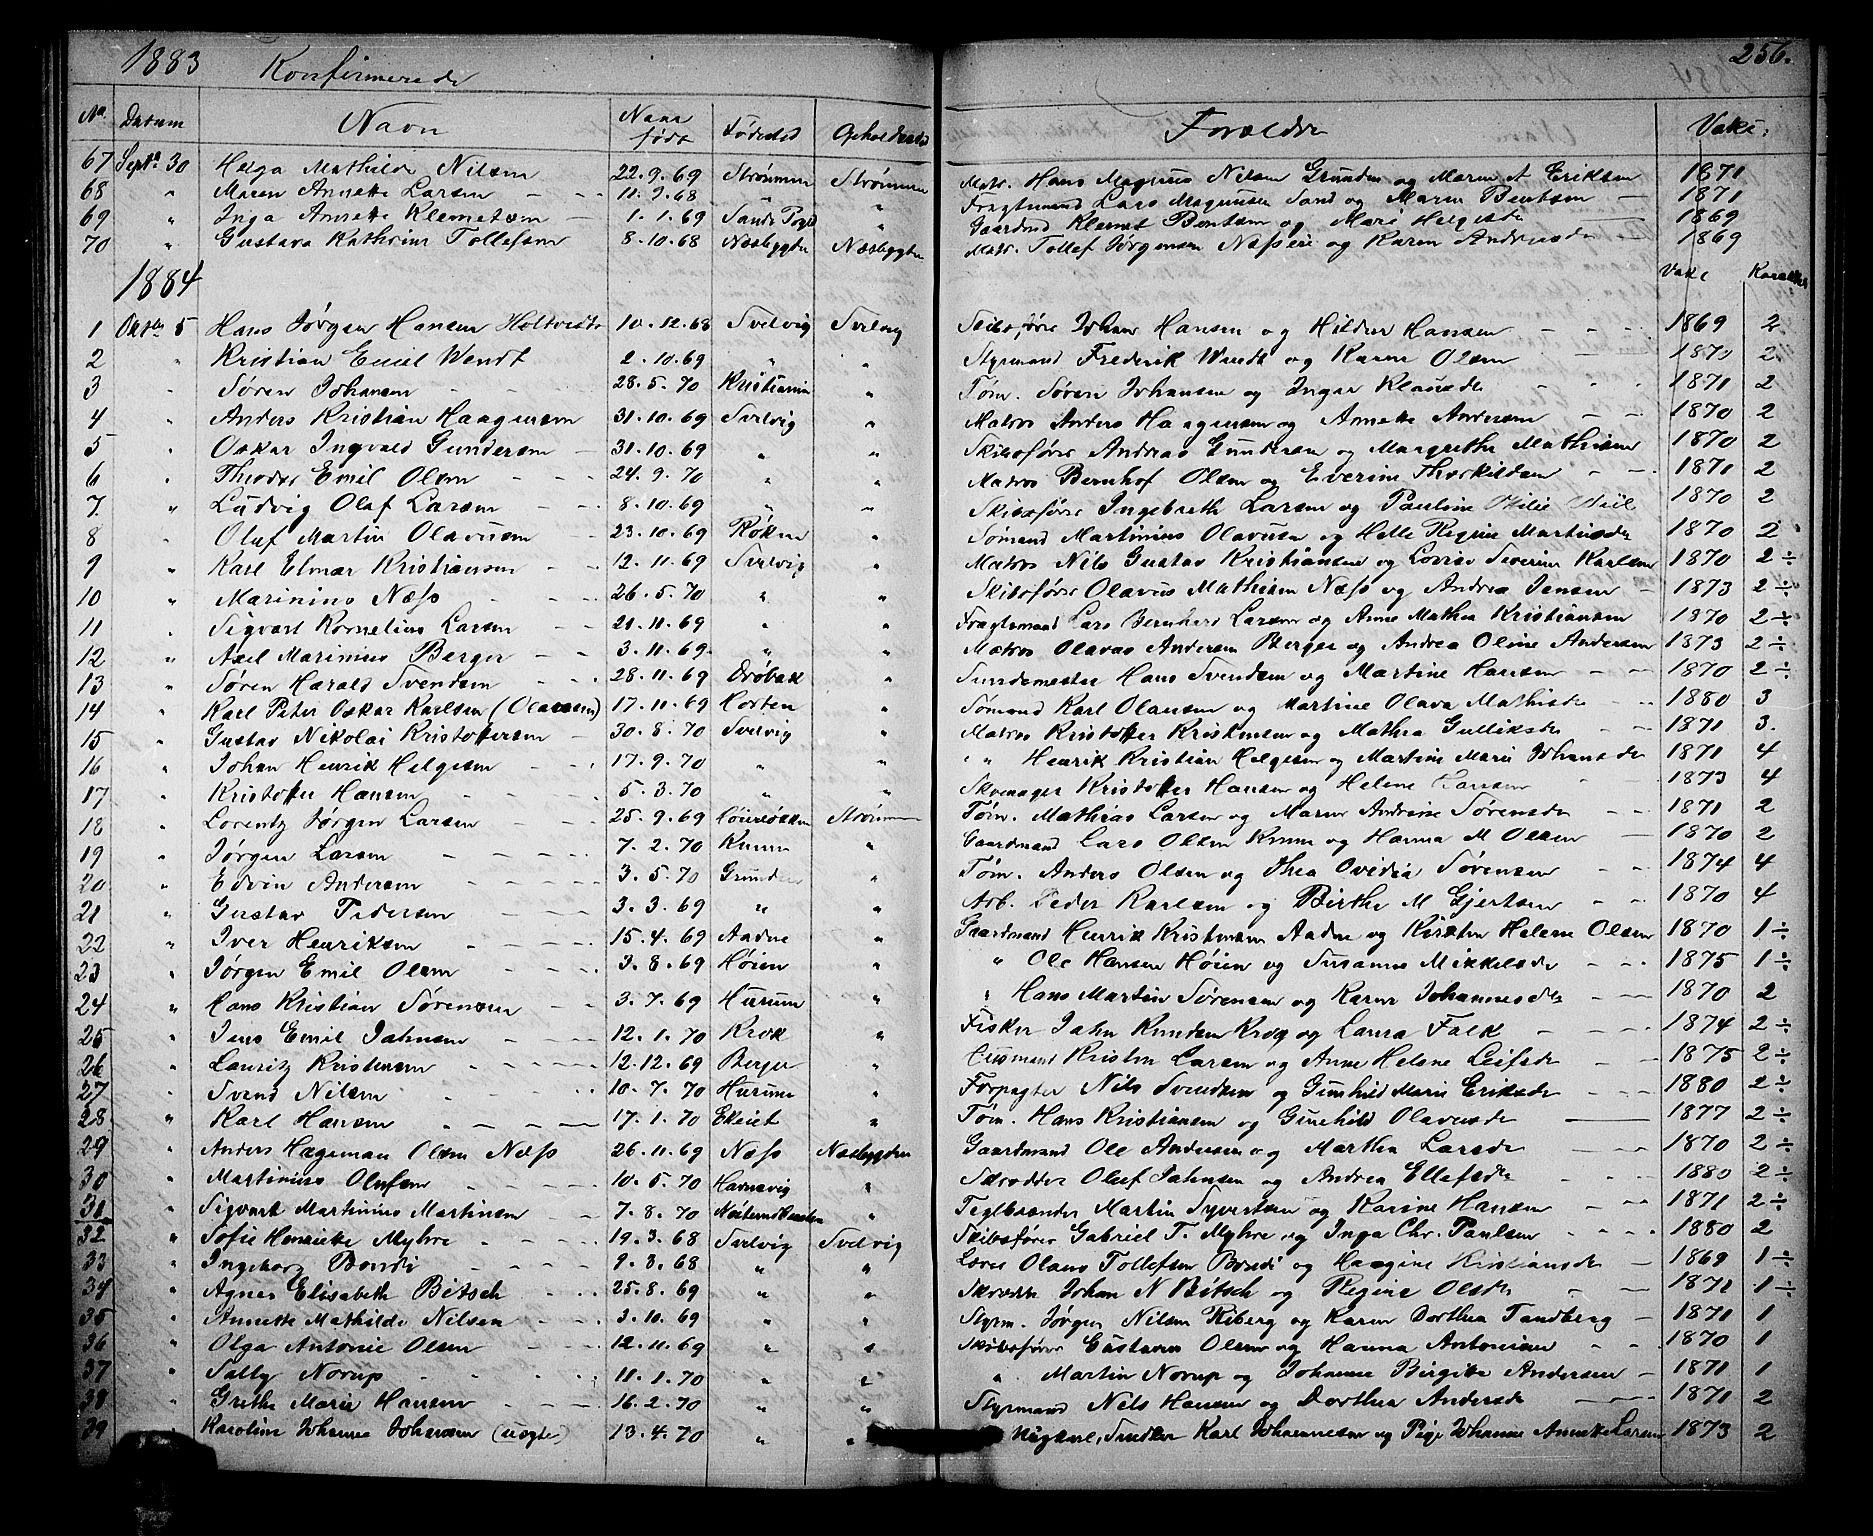 1883 Konfirmerede 256.
No Datum Navn Naar født Fødested Opholdssted Forældre Vakc.
67 Septr. 30 Helga Mathilde Nilsen 22.9.69 Strømmen Strømmen Matr. Hans Magnus Nilsen Grunden og Maren A Eriksen 1871
68 " Maren Annette Larsen 11.9.68 " " Fragtemand Lars Magnussen Sand og Maren Bentsen 1871
69 " Inga Annette Klemetsen 1.1.69 Sande Pgld " Gaardmd Klemet Bentsen og Mari Helgesdr 1869
70 " Gustava Kathrine Tollefsen 8.10.68 Næsbygden Næsbygden Matr. Tollef Jørgensen Næseie og Karen Andreasdr 1869
1884 Vakc Karakter
1 Oktbr 5 Hans Jørgen Hansen Holtvedt 10.12.68 Svelvig Svelvig Skibsfører Johan Hansen og Hilder Hansen 1869 2
2 " Kristian Emil Wendt 2.10.69 " " Styrmand Frederik Wendt og Karen Olsen 1870 2
3 " Søren Johansen 28.5.70 Kristiania " Tøm. Søren Johansen og Inger Klausdr 1871 2
4 " Anders Kristian Haagensen 31.10.69 Svelvig " Matros Anders Haagensen og Annette Andersen 1870 2
5 " Oskar Ingvald Gundersen 31.10.69 " " Skibsfører Andreas Gundersen og Margrethe Mathisen 1870 2
6 " Theodor Emil Olsen 24.9.70 " " Matros Bernhof Olsen og Everine Thorkildsen 1871 2
7 " Ludvig Olaf Larsen 8.10.69 " " Skibsfører Ingebreth Larsen og Pauline 1870 2
8 " Oluf Martin Olavusen 23.10.69 Røken " Sømand Martinius Olavusen og Helle Regine Martinsdr 1870 2
9 " Karl Elmar Kristiansen 12.11.69 Svelvig " Matros Nils Gustav Kristiansen og Lovise Severine Karlsen 1870 2÷
10 " Marinius Næss 26.5.70 " " Skibsfører Olavus Mathisen Næss og Andrea Jensen 1873 2÷
11 " Sigvart Kornelius Larsen 21.11.69 " " Fragtemand Lars Bernhard Larsen og Anne Mathea Kristiansen 1870 2÷
12 " Axel Marinius Berger 3.11.69 " " Matros Olavus Andersen Berger og Andrea Oline Andersen 1873 2÷
13 " Søren Harald Svendsen 28.11.69 Drøbak " Sundemester Hans Svendsen og Martine Hansen 1870 2÷
14 " Karl Peter Oskar Karlsen (Olaussen) 17.11.69 Horten " Sømand Karl Olausen og Martine Olava Mathisdr 1880 3
15 " Gustav Nikolai Kristoffersen 30.8.70 Svelvig " Matros Kristoffer Kristensen og Mathea Gulliksdr 1871 3.
16 " Johan Henrik Helgesen 17.9.70 " " " Henrik Kristian Helgesen og Martine Marie Johansdr 1871 4
17 " Kristoffer Hansen 5.3.70 " " Skomager Kristoffer Hansen og Helene Larsen 1873 4
18 " Lorentz Jørgen Larsen 25.9.69 Strømmen Tøm. Mathias Larsen og Maren Andrine Sørensdr 1871 2
19 " Jørgen Larsen 7.2.70 " Gaardmand Lars Olsen og Hanna M Olsen 1870 2
20 " Edvin Andersen 3.5.70 Grunden " Tøm. Anders Olsen og Thea Ovidia Sørensen 1874 4
21 " Gustav Pedersen 3.3.69 " " Arb. Peder Karlsen og Birthe M Gjertsen 1870 4
22 " Iver Henriksen 15.4.69 Aadne " Gaardmand Henrik Kristensen Aadne og Kirsten Helene Olsen 1870 1÷
23 " Jørgen Emil Olsen 3.8.69 Høien " " Ole Hansen Høien og Susanne Mikkelsdr 1875 1÷
24 " Hans Kristian Sørensen 3.7.69 Hurum " " Hans Martin Sørensen og Karen Johannesdr 1870 2
25 " Jens Emil Jahnsen 12.1.70 Krok " Fisker Jahn Knudsen Krog og Laura Falk 1874 2÷
26 " Lauritz Kristensen 12.12.69 Berger " Husmand Kristen Larsen og Anne Helene Leifsdr 1875 2÷
27 " Svend Nilsen 10.7.70 Hurum " Forpagter Nils Svendsen og Gunhild Marie Eriksdr 1880 2÷
28 " Karl Hansen 17.1.70 Ekeiet " Tøm. Hans Kristiansen og Gunhild Olavusdr 1877 2÷
29 " Anders Hageman Olsen Næss 26.11.69 Næss Næsbygden Gaardmand Ole Andersen og Marthea Larsdr 1870 2÷
30 " Martinius Olufsen 10.5.70 Havnevig " Skrædder Oluf Jahnsen og Andrea Ellefsdr 1880 2÷
31 " Sigvart Martinius Martinsen 7.8.70 " Teglbrænder Martin Syvertsen og Karine Hansen 1871 2÷
32 " Sofie Henriette Myhre 19.3.68 Svelvig Svelvig Skibsfører Gabriel T. Myhre og Inga Chr. Paulsen 1880 2
33 " Ingeborg Bondi 9.3.68 " " Lærer Olaus Tollefsen Bondi og Haagine Kristiansdr 1869 1÷
34 " Agnes Elisabeth Bitsch 25.8.69 " " Skrædder Johan N Bitsch og Regine Olsdr 1871 1÷
35 " Annette Mathilde Nilsen 3.10.69 " " Styrm. Jørgen Nilsen Kiberg og Karen Dorthea Tandberg 1871 1
36 " Olga Antonie Olsen 12.11.69 " " Skibsfører Gustav Olsen og Hanna Antonisen 1870 1
37 " Sally Norup 11.1.70 " " " Martin Norup og Johanne Birgitte Andersen 1871 1
38 " Grethe Marie Hansen 16.2.70 " " Styrmand Nils Hansen og Dorthea Andersdr 1871 2
39 " Karoline Johanne Johansen (uægte) 13.4.70 " " Ungkarl, Snedker Karl Johannesen og Pige Johanne Annette Larsen 1873 2